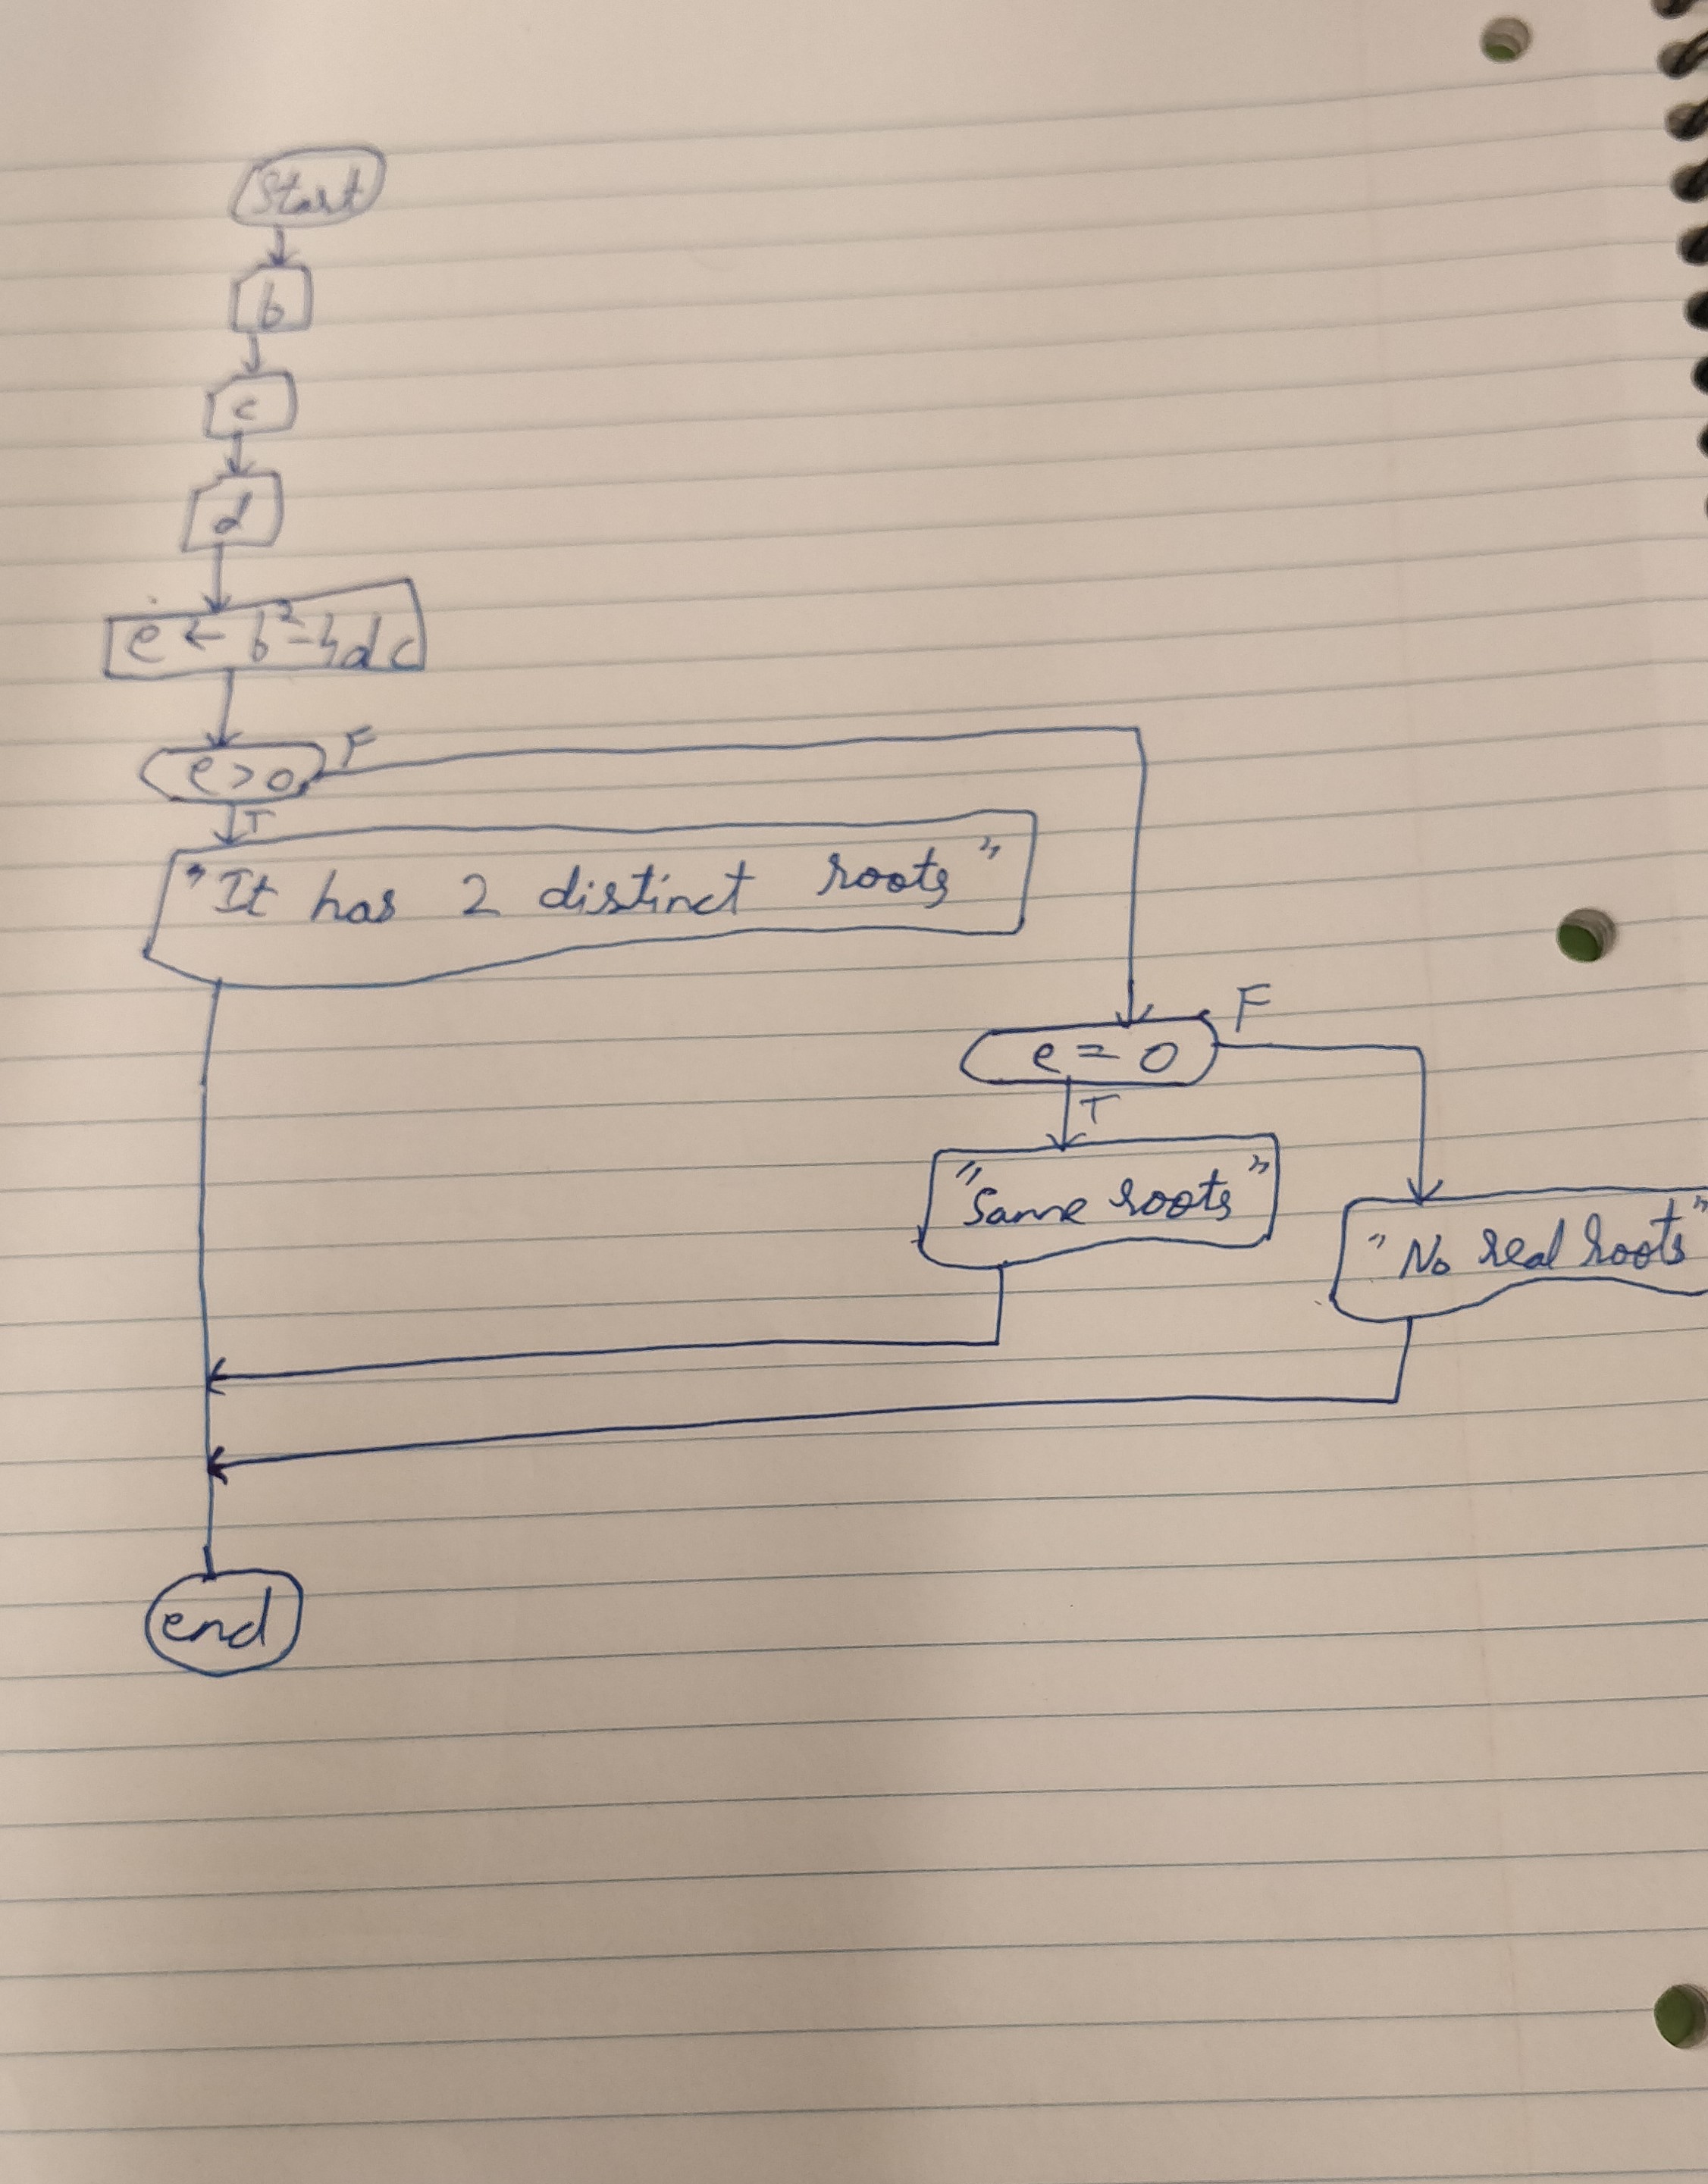 Start
b
c
d
e ← b²-4dc
e>0 F
T
"It has 2 distinct roots"
e = 0 F
T
"Same roots"
"No real roots"
end